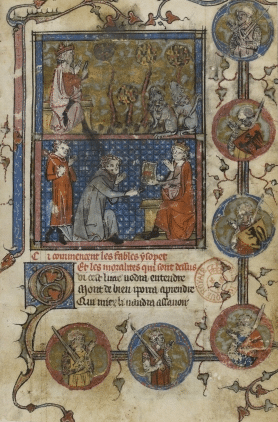 Ci commencent les fables ysopet
Et les moralites qui sont dessus
Qi cest livre vodra entendre
Mont de bien i porra aprendre
Qui miex la vaudra